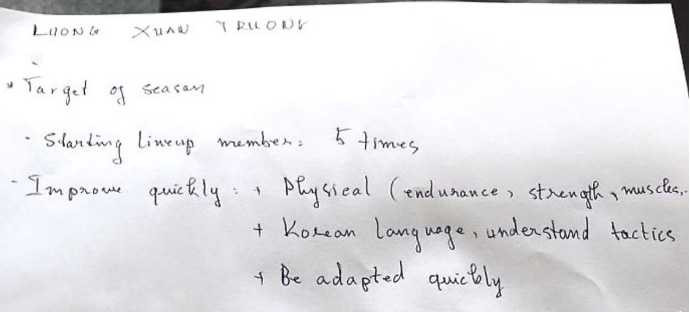 LUONG XUAN TRUONG
* Target of season
- Starting lineup member: 5 times
- Improve quickly: + Physical (endurance, strength, muscles,..
+ Korean language, understand tactics
+ Be adapted quickly